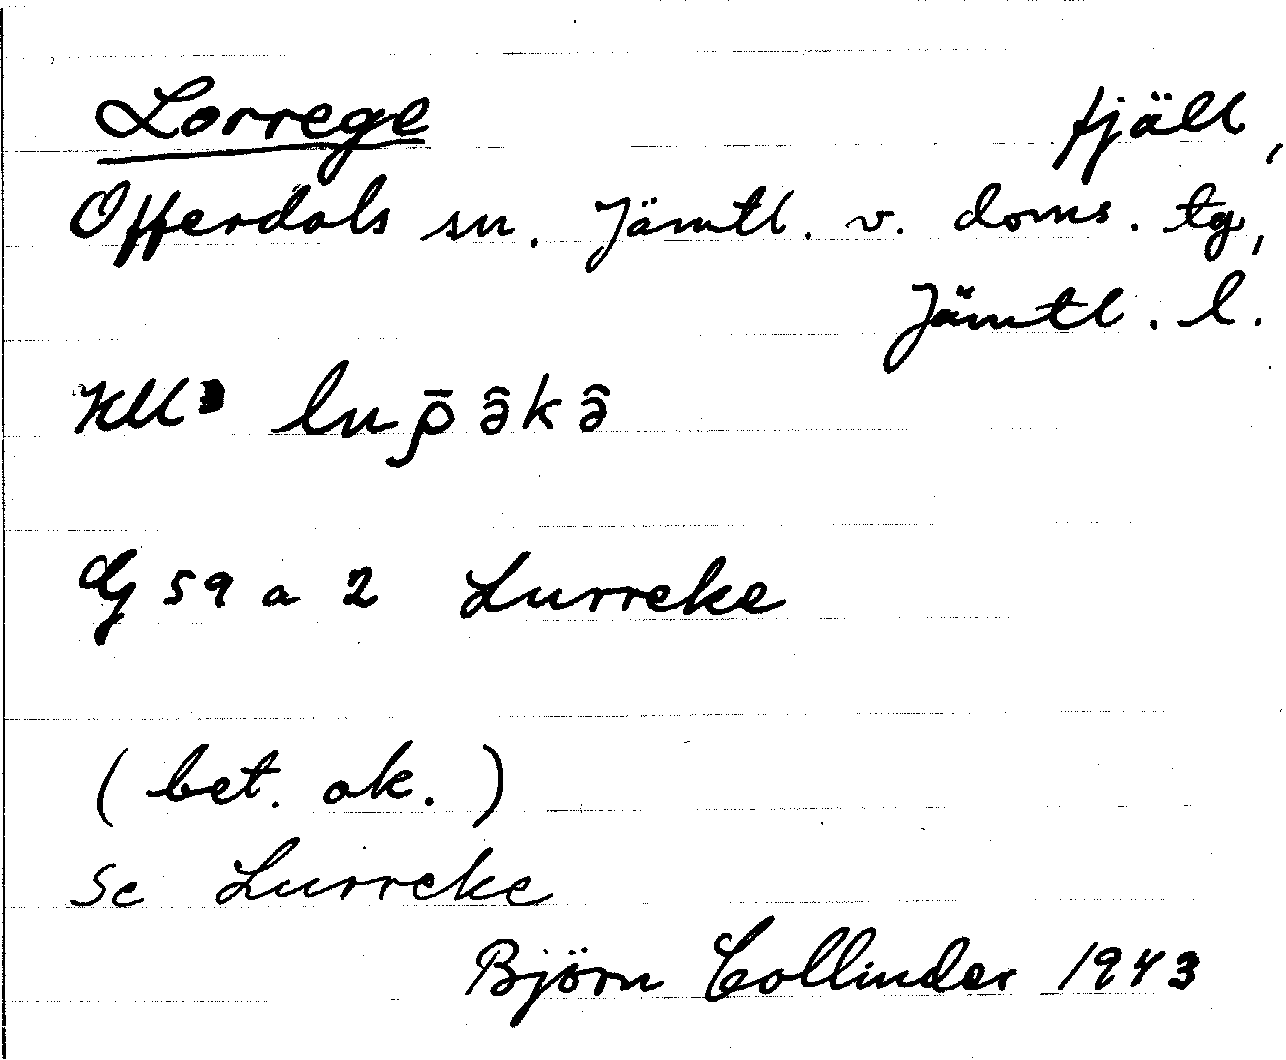 Lorrege fjäll,
Offerdals sn. Jämtl. v. doms. tg,
Jämtl. l.
luρ̄ə̂kə̂
G 59 a 2 Lurreke
(bet. ok.)
Se Lurreke
Björn Collinder 1943